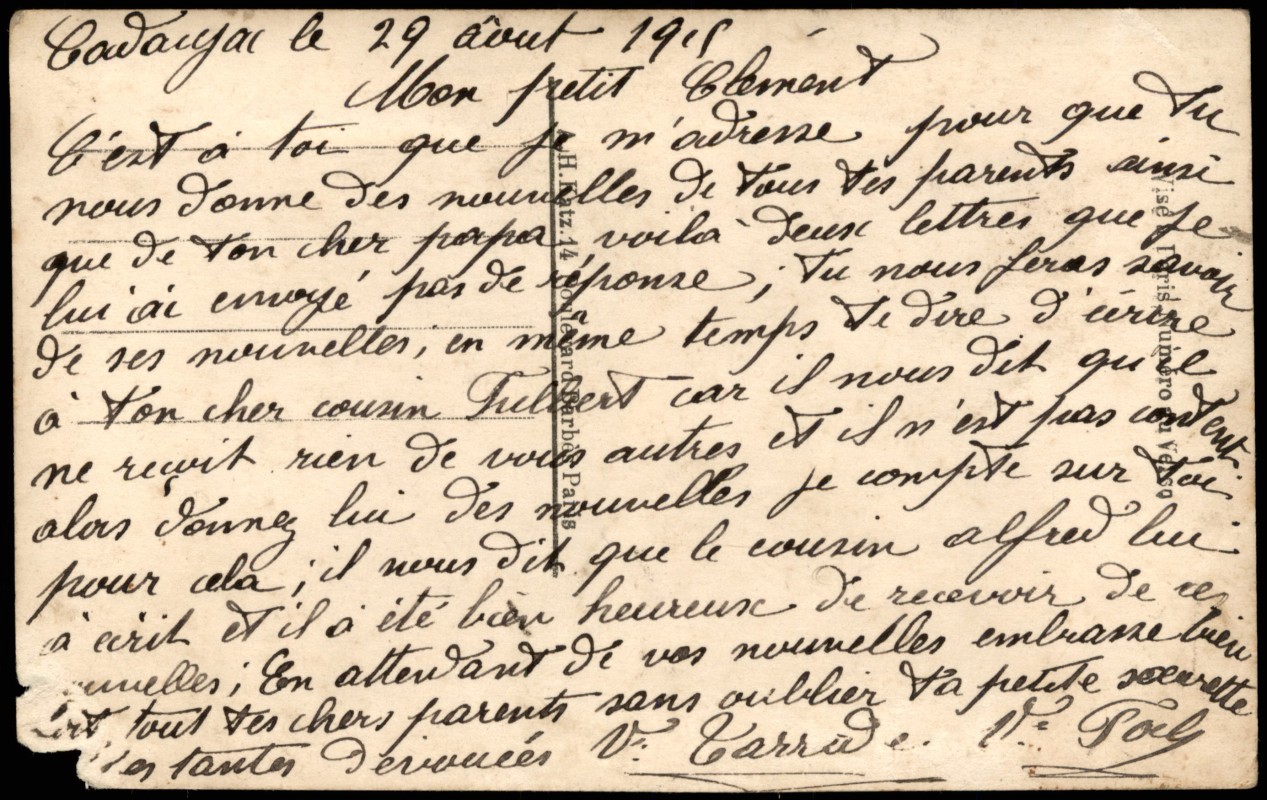 Cadaujac le 29 âout 1915
Mon petit Clément
C'est à toi que je m'adresse pour que tu
nous donne des nouvelles de tous tes parents ainsi
que de ton cher papa voilà deux lettres que je
lui ai envoyé pas de réponse ; tu nous feras savoir
de ses nouvelles, en même temps te dire d'écrire
à ton cher cousin car il nous dit qu'il
ne reçoit rien de vous autres et il n'est pas content
alors donnez lui des nouvelles je compte sur toi
pour cela ; il nous dit que le cousin alfred lui
à écrit et il à été bien heureux de recevoir de ces
nouvelles ; En attendant de vos nouvelles embrasse bien
tout tes chers parents sans oublier ta petite sœurette
tes tantes dévouées Ve Tarride. Ve
H. Katz. 14 Boulevard Barbès Paris
Visé à Paris numéro au verso